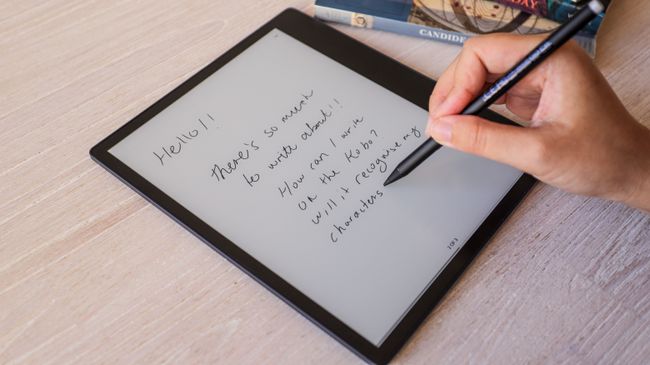 CANDIDE
Hello!!
There's so much
to write about!!
How can I write
on the Kobo?
Will it recognise my
characters